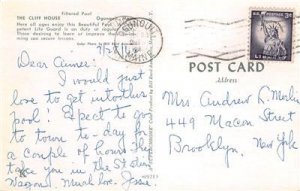 Filtered Pool
THE CLIFF HOUSE Ogunquit,
Here all ages enjoy this Beautiful Pool.
petent Life Guard is on duty at regular
Those desiring to learn or improve their
ming can secure lessons.
Dear Aimee:
I would just
love to get into this
pool! Expect to go
to town to-day for
a couple of hours. I'll
take you in the Station
Wagon. Much love, Jessie.
POST CARD
Address
Mrs Andrew L.
449 Macon Street
Brooklyn, New York